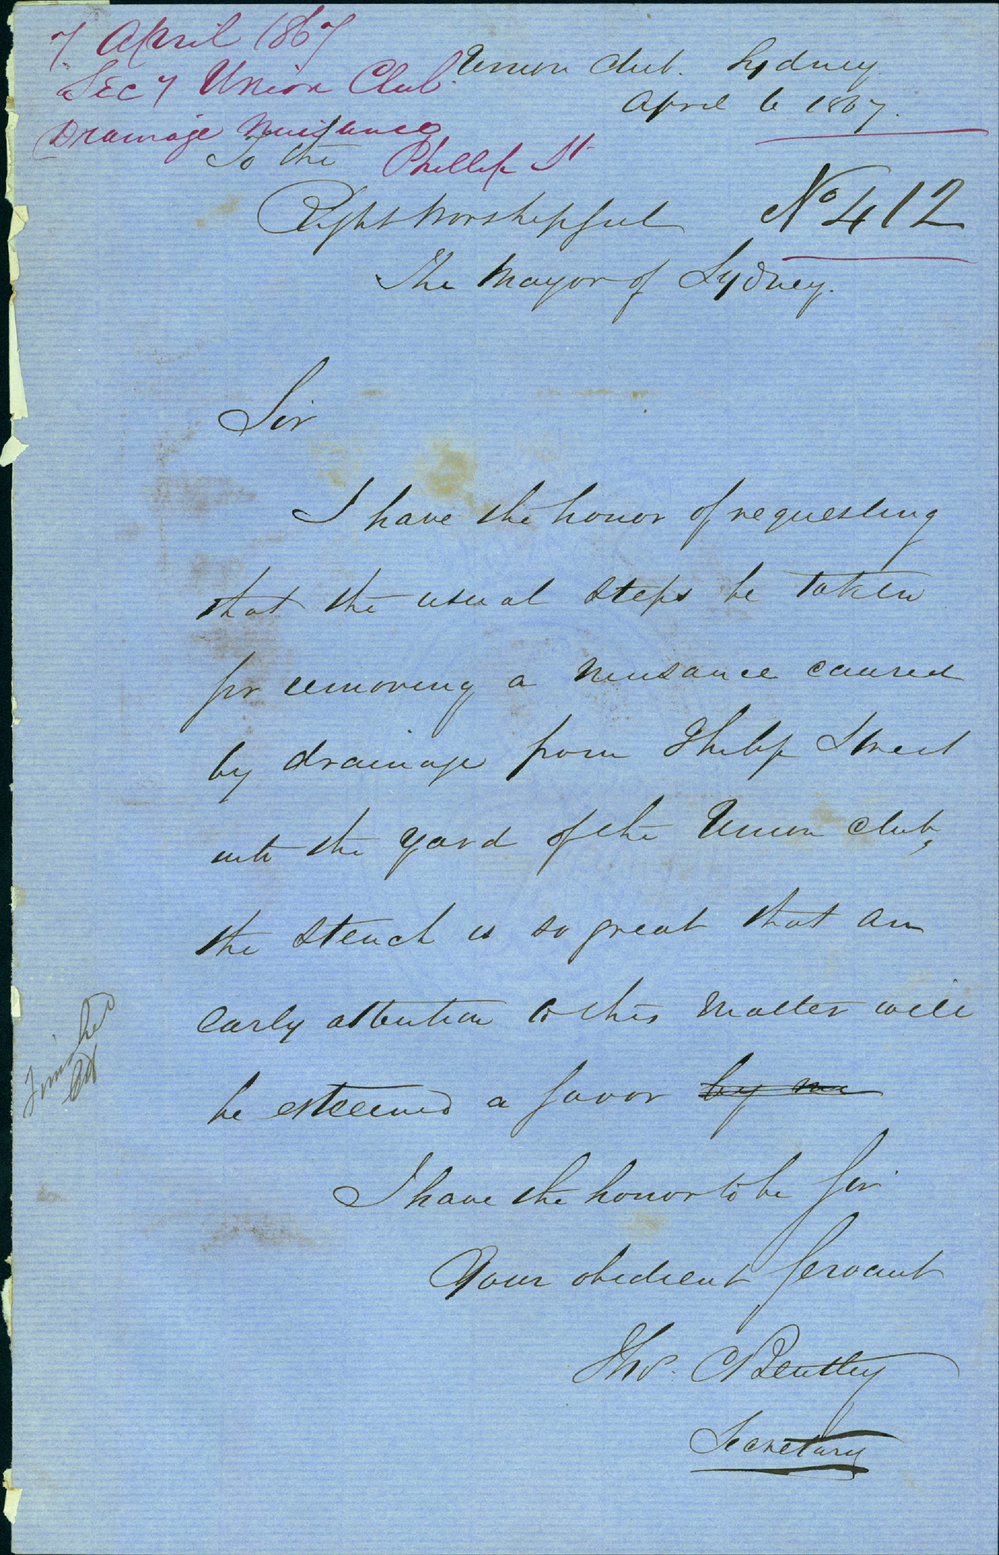 7 April 1867
Secy Union Club
Drainage Nuisance
Phillip St
Union Club. Sydney
April 6 1867.
To the
Right Worshipful
No 412
The Mayor of Sydney.
Sir
I have the honor of requesting
that the usual steps be taken
for removing a nuisance caused
by drainage from Philip Street
into the yard of the Union Club,
the stench is so great that an
early attention to this matter will
be esteemed a favor by me
I have the honor to be Sir
Your obedient Servant
Thos. C Bentley
Secretary
Finished